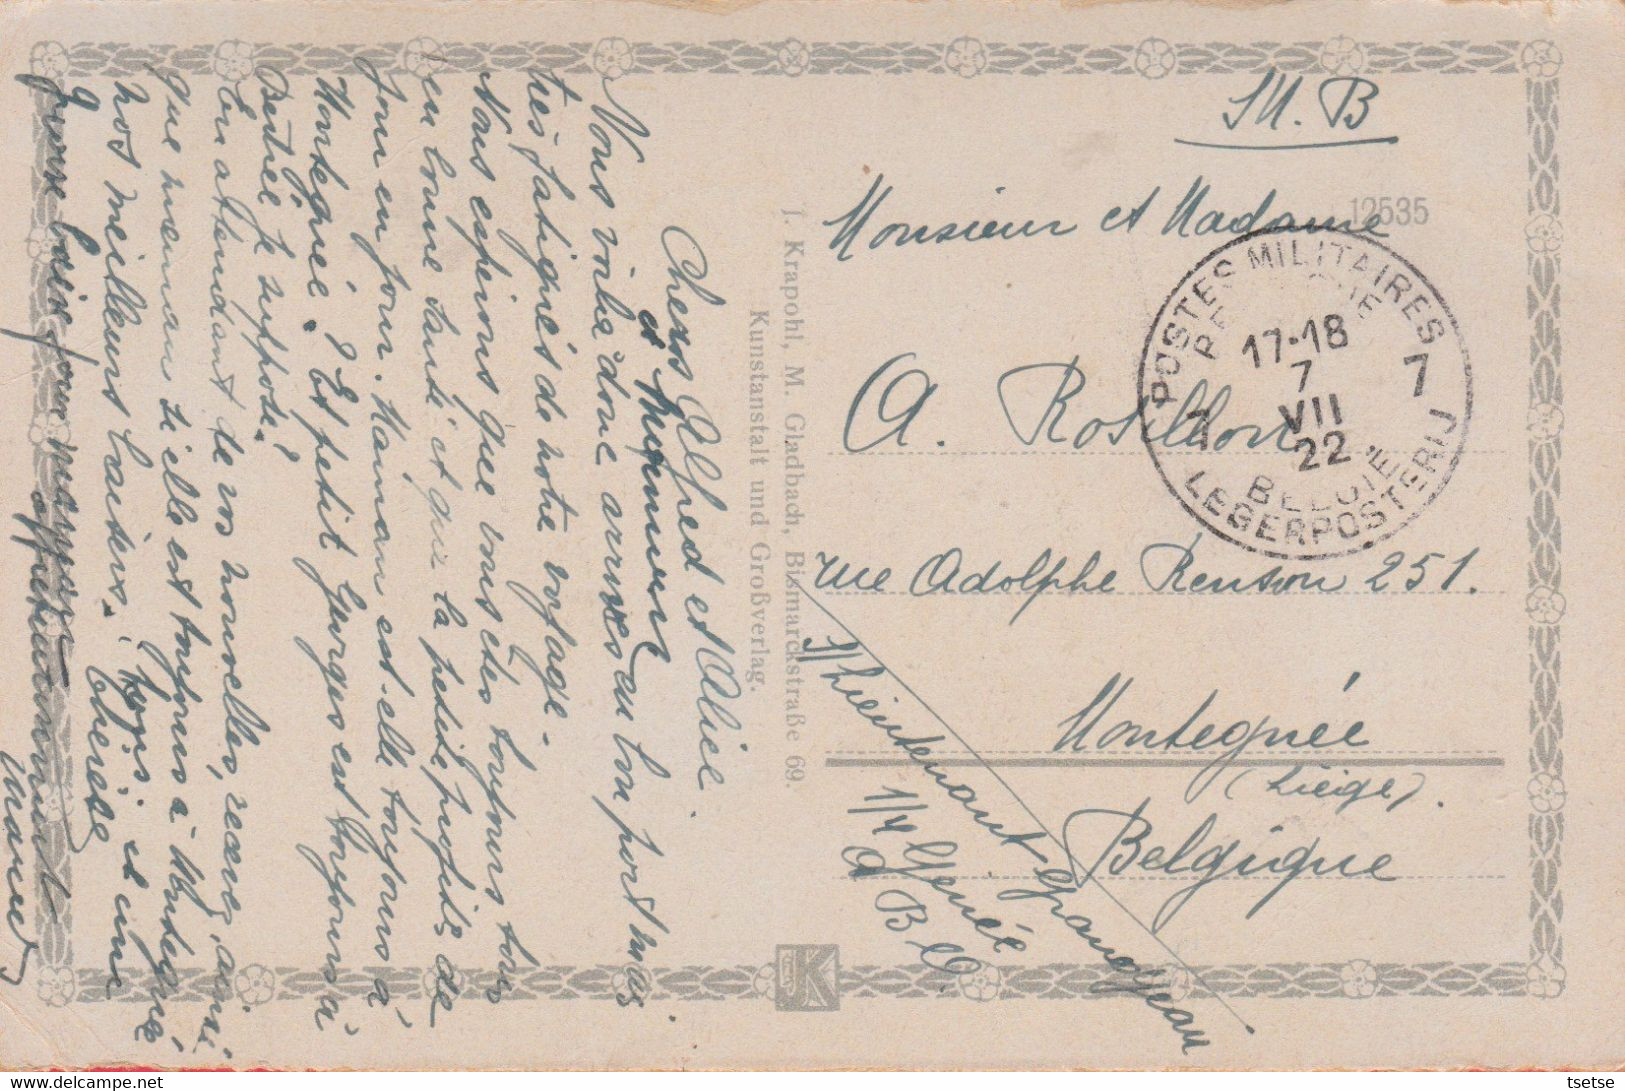 Chers Alfred et Alice
et
Nous voila donc arrivés au bon port mais
très fatigués de notre voyage.
Nous espérons que vous êtes toujours tous
en bonne santé et que la petite profite de
jour en jour. Maman est-elle toujours à
Montegnée. ? Et petit Georges est toujours à
je suppose.
En attendant de vos nouvelles, recevez, ainsi
que maman si elle est toujours à Montegnée
nos meilleurs baisers.
grosse baise pour
J. Krapohl, M. Gladbach, Bismarckstraße 69.
Kunstanstalt und Großverlag.
JK
S.M. B
12535
Monsieur et Madame
A. Rosillon
rue Adolphe Renson 251.
Montegnée
(Liège).
Belgique
POSTES MILITAIRES
BELGIQUE
17-18
7
VII
22
7 7
BELGIË
LEGERPOSTERIJ
Lieutenant Grandjean
1/4 Genée
A B O
tsetse
delcampe.net